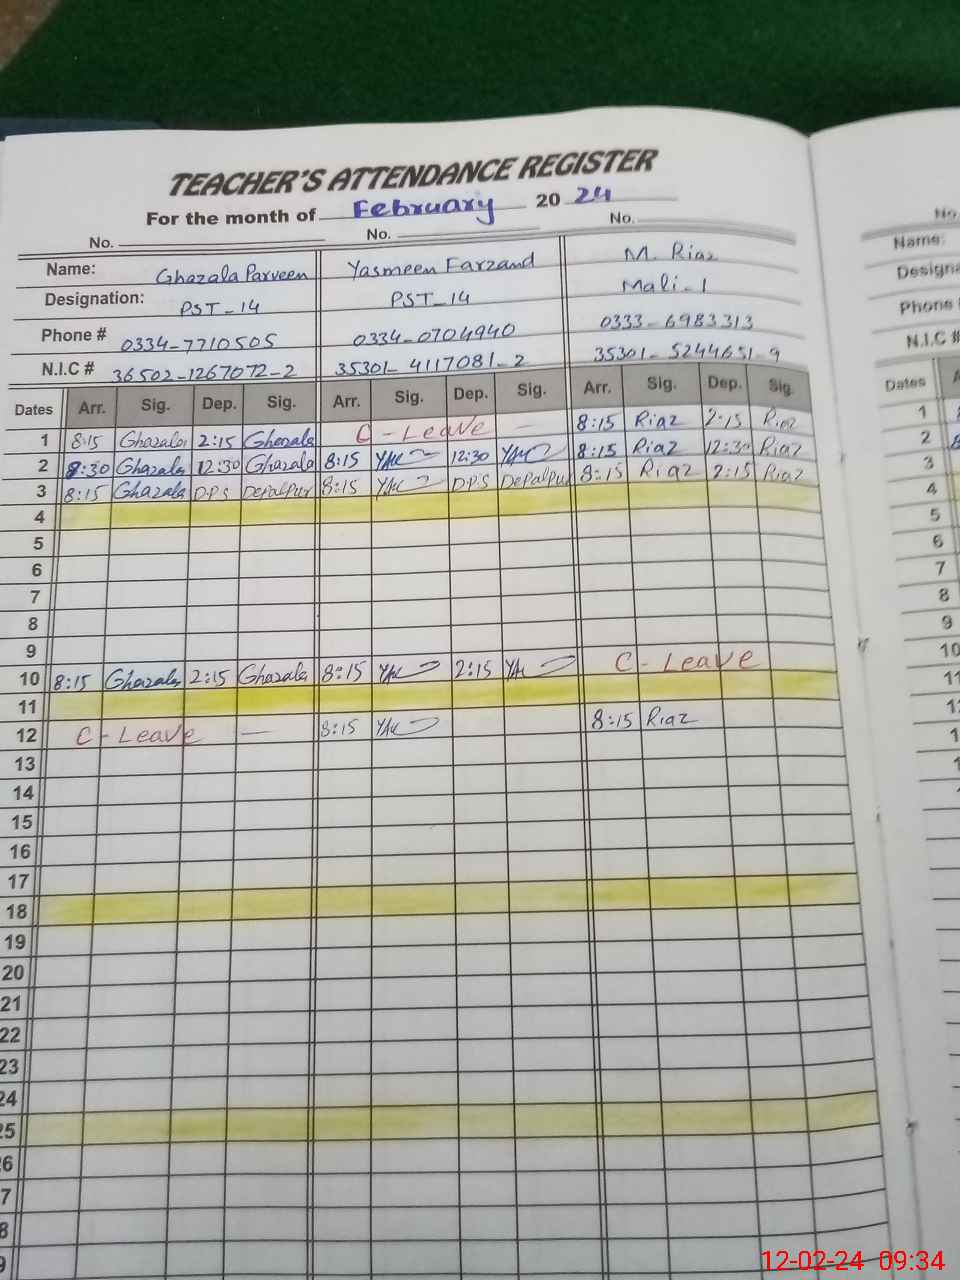 TEACHER'S ATTENDANCE REGISTER
For the month of February 2024
No. No. No.
Name: Ghazala Parveen Yasmeen Farzand M. Riaz
Designation: PST-14 PST-14 Mali-1
Phone # 0334-7710505 0334-0704940 0333-6983313
N.I.C # 36502-1267072-2 35301-4117081-2 35301-5244651-9
Dates Arr. Sig. Dep. Sig. Arr. Sig. Dep. Sig. Arr. Sig. Dep. Sig.
1 8:15 Ghazala 2:15 Ghazala C-Leave — 8:15 Riaz 2:15 Riaz
2 8:30 Ghazala 12:30 Ghazala 8:15 12:30 8:15 Riaz 12:30 Riaz
3 8:15 Ghazala DPS Depalpur 8:15 DPS Depalpur 8:15 Riaz 2:15 Riaz
4
5
6
7
8
9
10 8:15 Ghazala 2:15 Ghazala 8:15 2:15 C-Leave
11
12 C-Leave — 8:15 8:15 Riaz
13
14
15
16
17
18
19
20
21
22
23
24
25
26
7
8
9
No.
Name:
Phone
N.I.C #
Dates
1
2
3
4
5
6
7
8
9
10
11
12-02-24 09:34